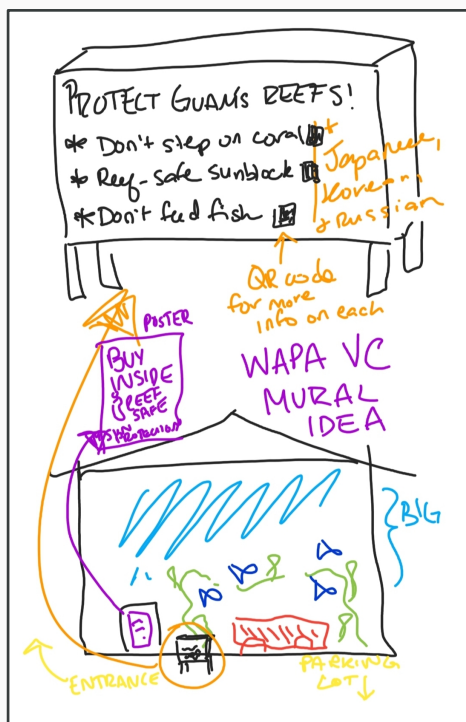 PROTECT GUAMS REEFS!
* Don't step on coral
* Reef-safe sunblock
* Don't feed fish
+ Japanese,
Korean
+ Russian
QR code
for more
info on each
POSTER
BUY
INSIDE
REEF
SAFE
SUN
PROTECTION
WAPA VC
MURAL
IDEA
BIG
ENTRANCE
PARKING
LOT